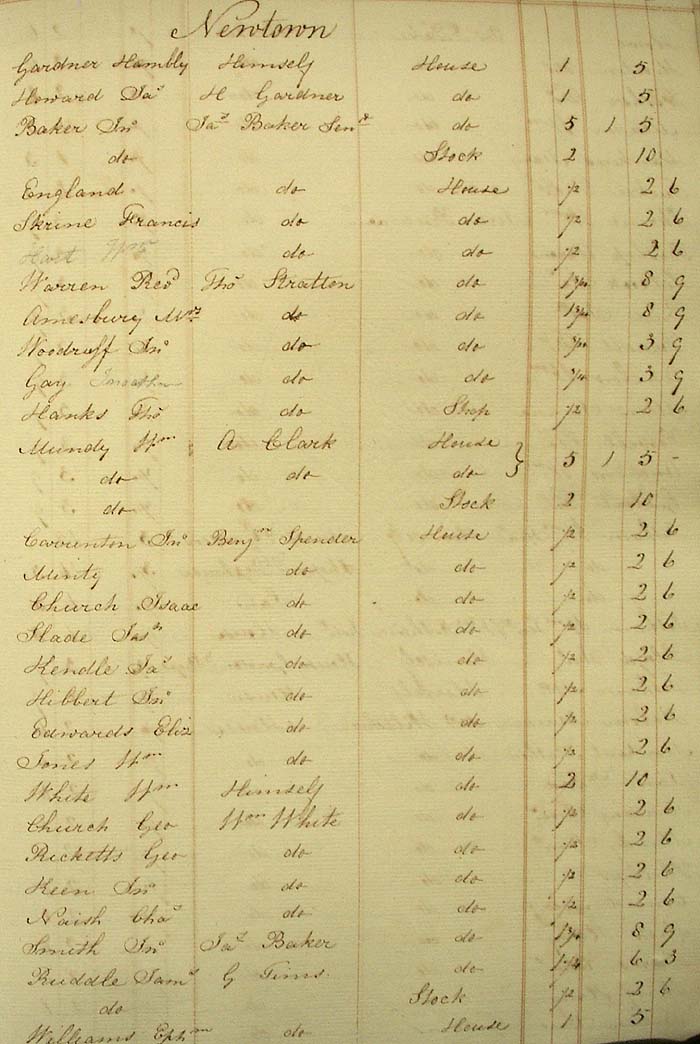 Newtown
Gardner Hambly Himself House 1 5
Howard Jas H Gardner do 1 5
Baker Jno Jas Baker Senr do 5 1 5
do Stock 2 10
England do House 1/2 2 6
Skrine Francis do do 1/2 2 6
Hart Wm do do 1/2 2 6
Warren Revd Thos Stratton do 1 3/4 8 9
Amesbury Mrs do do 1 3/4 8 9
Woodruff Jno do do 3/4 3 9
Gay Jonathn do do 3/4 3 9
Hanks Thos do Shop 1/2 2 6
Mundy Wm A Clark House
do do do } 5 1 5 -
do Stock 2 10
Carrinton Jno Benjn Spender House 1/2 2 6
Minty do do 1/2 2 6
Church Isaac do do 1/2 2 6
Slade Jas do do 1/2 2 6
Kendle Jas do do 1/2 2 6
Hibbert Jno do do 1/2 2 6
Edwards Eliz do do 1/2 2 6
Jones Wm do do 1/2 2 6
White Wm Himself do 2 10
Church Geo Wm White do 1/2 2 6
Ricketts Geo do do 1/2 2 6
Keen Jno do do 1/2 2 6
Naish Chas do do 1/2 2 6
Smith Jno Jas Baker do 1 3/4 8 9
Ruddle Saml G Tims do 1 1/4 6 3
do Stock 1/2 2 6
Williams Ephm do House 1 5